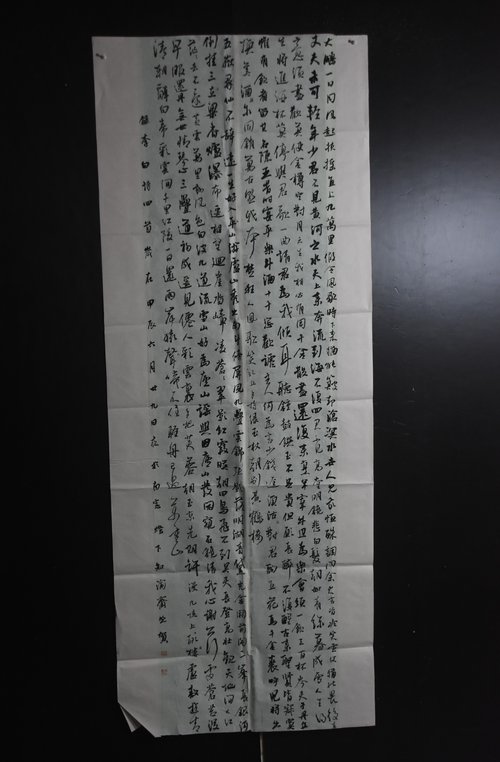 大鵬一日同風起扶搖直上九萬里假令風歇時下來猶能簸卻滄溟水世人見我恒殊調聞余大言皆冷笑宣父猶能畏後生
丈夫未可輕年少君不見黃河之水天上來奔流到海不復回君不見高堂明鏡悲白髮朝如青絲暮成雪人生得
意須盡歡莫使金樽空對月天生我材必有用千金散盡還復來烹羊宰牛且為樂會須一飲三百杯岑夫子丹丘
生將進酒杯莫停與君歌一曲請君為我傾耳聽鐘鼓饌玉不足貴但願長醉不復醒古來聖賢皆寂寞
惟有飲者留其名陳王昔時宴平樂斗酒十千恣歡謔主人何為言少錢徑須沽酒對君酌五花馬千金裘呼兒將出
換美酒與爾同銷萬古愁我本楚狂人鳳歌笑孔丘手持綠玉杖朝別黃鶴樓
五嶽尋仙不辭遠一生好入名山遊廬山秀出南斗傍屏風九疊雲錦張影落明湖青黛光金闕前開二峯長銀河
倒挂三石梁香爐瀑布遙相望迴崖沓嶂凌蒼蒼翠影紅霞映朝日鳥飛不到吳天長登高壯觀天地間大江
茫茫去不還黃雲萬里動風色白波九道流雪山好為廬山謠興因廬山發閑窺石鏡清我心謝公行處蒼苔沒
早服還丹無世情琴心三疊道初成遙見僊人彩雲裏手把芙蓉朝玉京先期汗漫九垓上願接盧敖遊太
清朝辭白帝彩雲間千里江陵一日還兩岸猿聲啼不住輕舟已過萬重山
錄李白詩四首歲在甲辰六月廿九日夜於燈下